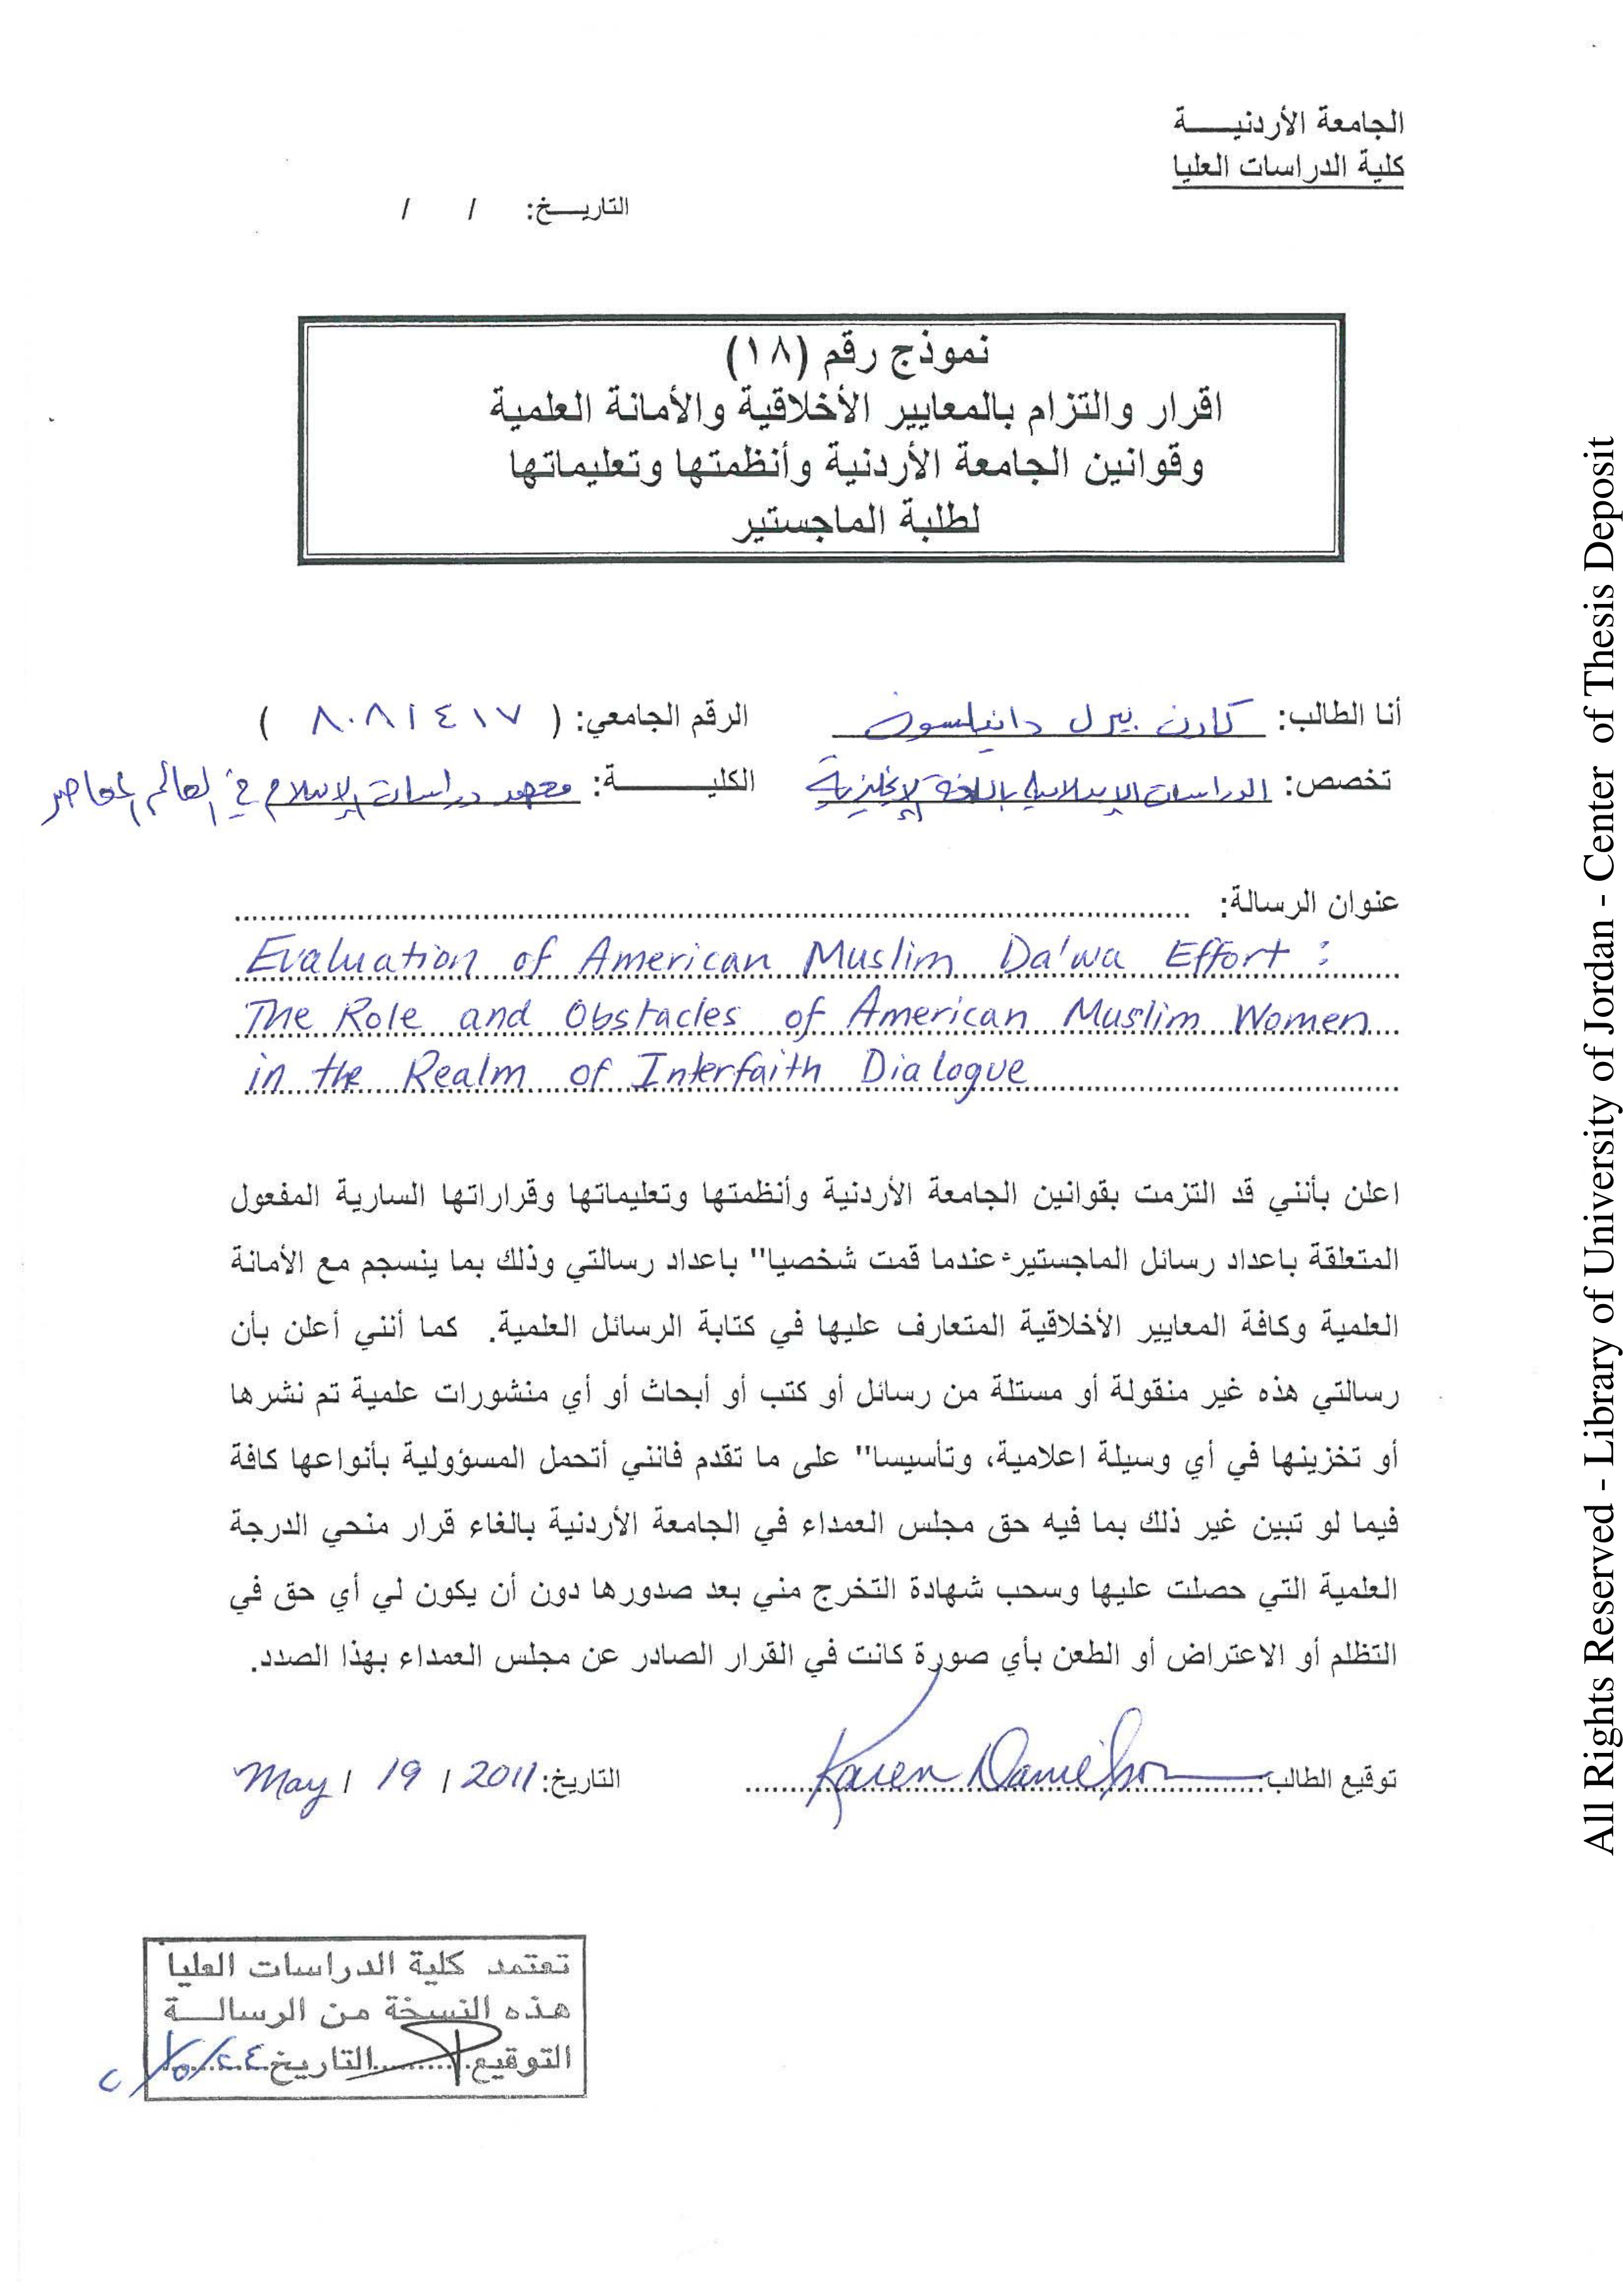 الجامعة الأردنيــــة
كلية الدراسات العليا
التاريـــخ: / /
نموذج رقم (١٨)
اقرار والتزام بالمعايير الأخلاقية والأمانة العلمية
وقوانين الجامعة الأردنية وأنظمتها وتعليماتها
لطلبة الماجستير
أنا الطالب: كارن بيرل دانيلسون الرقم الجامعي: ( ٨٠٨١٤١٧ )
تخصص: الدراسات الإسلامية باللغة الإنجليزية الكليـــــــة: معهد دراسات الإسلام في العالم المعاصر
عنوان الرسالة:
Evaluation of American Muslim Da'wa Effort :
The Role and Obstacles of American Muslim Women
in the Realm of Interfaith Dialogue
اعلن بأنني قد التزمت بقوانين الجامعة الأردنية وأنظمتها وتعليماتها وقراراتها السارية المفعول
المتعلقة باعداد رسائل الماجستير عندما قمت شخصيا" باعداد رسالتي وذلك بما ينسجم مع الأمانة
العلمية وكافة المعايير الأخلاقية المتعارف عليها في كتابة الرسائل العلمية. كما أنني أعلن بأن
رسالتي هذه غير منقولة أو مستلة من رسائل أو كتب أو أبحاث أو أي منشورات علمية تم نشرها
أو تخزينها في أي وسيلة اعلامية، وتأسيسا" على ما تقدم فانني أتحمل المسؤولية بأنواعها كافة
فيما لو تبين غير ذلك بما فيه حق مجلس العمداء في الجامعة الأردنية بالغاء قرار منحي الدرجة
العلمية التي حصلت عليها وسحب شهادة التخرج مني بعد صدورها دون أن يكون لي أي حق في
التظلم أو الاعتراض أو الطعن بأي صورة كانت في القرار الصادر عن مجلس العمداء بهذا الصدد.
توقيع الطالب: Karen Danielson التاريخ: May / 19 / 2011
تعتمد كلية الدراسات العليا
هذه النسخة من الرسالــة
التوقيع التاريخ
All Rights Reserved - Library of University of Jordan - Center of Thesis Deposit